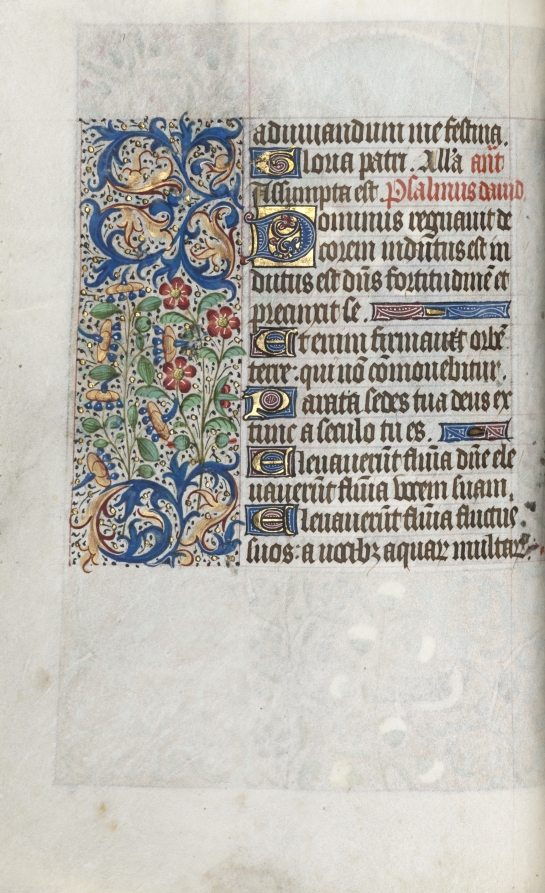 adiuuandum me festina.
Gloria patri. Alla añt
Assumpta est. Psalmus dauid
Dominus regnauit de
corem indutus est in
dutus est dñs fortitudinẽ et
precinxit se.
Etenim firmauit orbẽ
terre: qui nõ cõmouebitur.
Parata sedes tua deus ex
tunc a seculo tu es.
Eleuauerũt flu͂ia dñe ele
uauerũt flu͂ia vocem suam.
Eleuauerũt flu͂ia fluctus
suos: a uocibꝫ aquaꝝ multaꝝ.